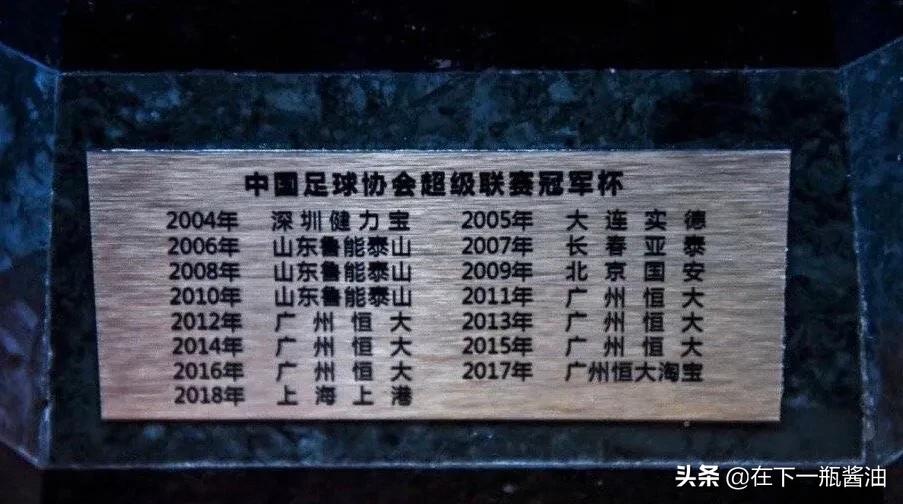 中国足球协会超级联赛冠军杯
2004年 深圳健力宝 2005年 大连实德
2006年 山东鲁能泰山 2007年 长春亚泰
2008年 山东鲁能泰山 2009年 北京国安
2010年 山东鲁能泰山 2011年 广州恒大
2012年 广州恒大 2013年 广州恒大
2014年 广州恒大 2015年 广州恒大
2016年 广州恒大 2017年 广州恒大淘宝
2018年 上海上港
头条 @在下一瓶酱油